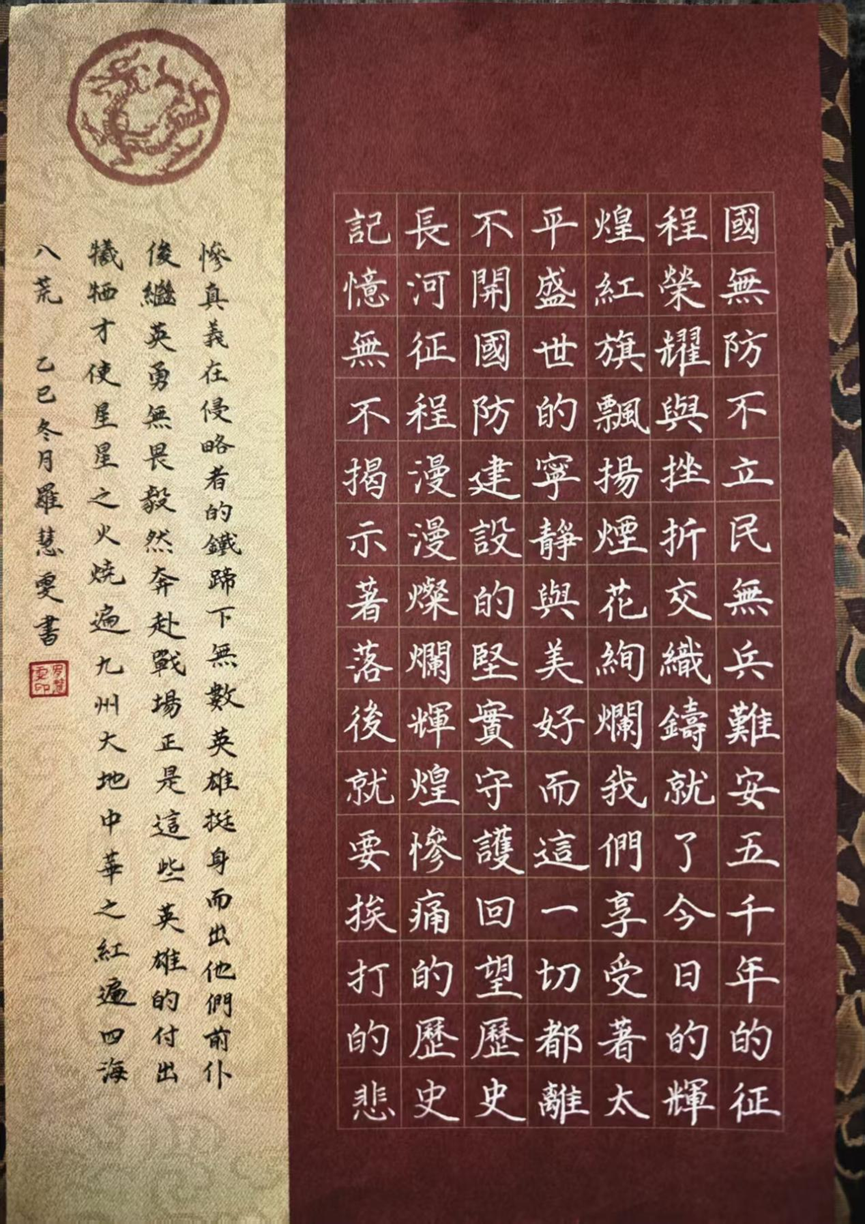 國無防不立民無兵難安五千年的征
程榮耀與挫折交織鑄就了今日的輝
煌紅旗飄揚煙花絢爛我們享受著太
平盛世的寧靜與美好而這一切都離
不開國防建設的堅實守護回望歷史
長河征程漫漫燦爛輝煌慘痛的歷史
記憶無不揭示著落後就要挨打的悲
慘真義在侵略者的鐵蹄下無數英雄挺身而出他們前仆
後繼英勇無畏毅然奔赴戰場正是這些英雄的付出
犧牲才使星星之火燒遍九州大地中華之紅遍四海
八荒 乙巳冬月羅慧雯書